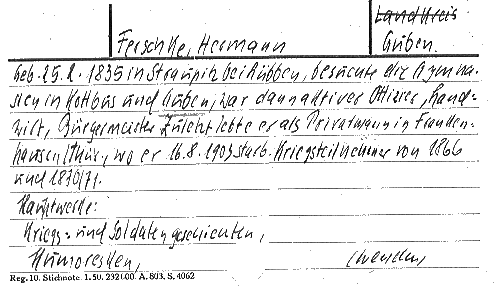 Landkreis
Ferschke, Hermann
Guben.
Geb. 25.2. 1835 in Straupitz bei Lübben, besuchte die Gymna-
sien in Kottbus und Guben, war dann aktiver Offizier, Land-
wirt, Bürgermeister. Zuletzt lebte er als Privatmann in Franken-
hausen/Thür., wo er 16.8.1903 starb. Kriegsteilnehmer von 1866
und 1870/71.
Hauptwerke:
Kriegs- und Soldatengeschichten,
Humoresken,
Reg. 10. Stichnote. 1. 50. 232100. A. 803. S. 4062